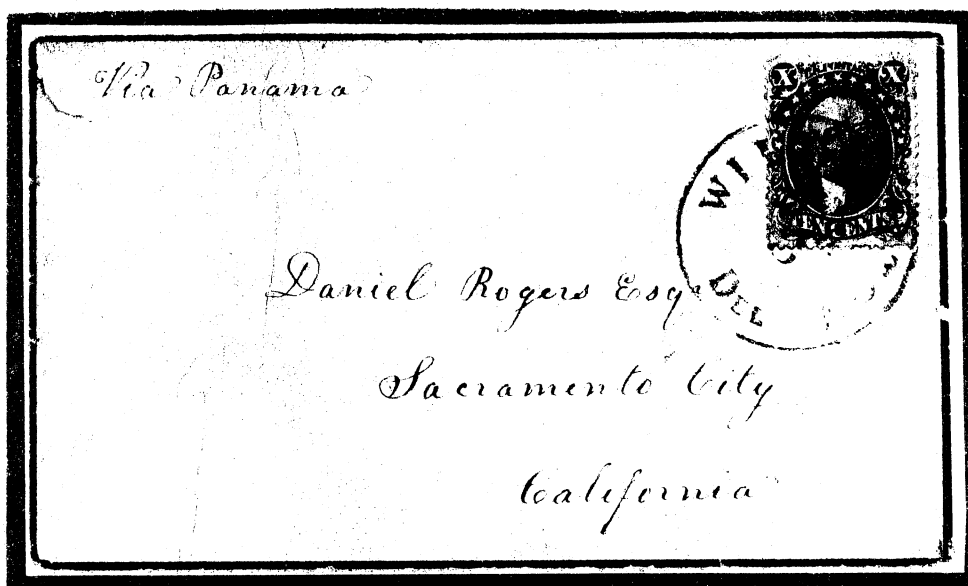 Via Panama
X X
TEN CENTS.
DEL
Daniel Rogers Esqr
Sacramento City
California